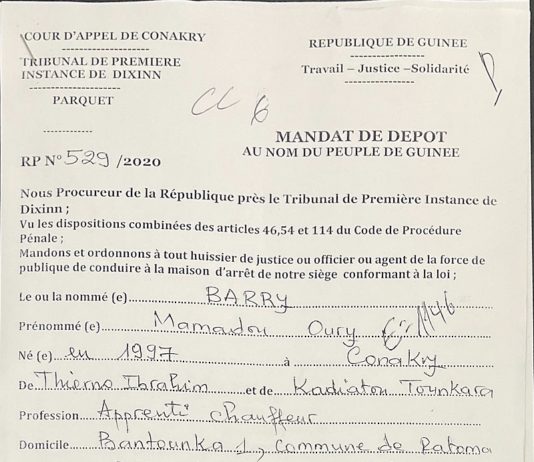 COUR D'APPEL DE CONAKRY
REPUBLIQUE DE GUINEE
TRIBUNAL DE PREMIERE
INSTANCE DE DIXINN
Travail – Justice –Solidarité
PARQUET
MANDAT DE DEPOT
AU NOM DU PEUPLE DE GUINEE
RP N° 529 /2020
Nous Procureur de la République près le Tribunal de Première Instance de
Dixinn ;
Vu les dispositions combinées des articles 46,54 et 114 du Code de Procédure
Pénale ;
Mandons et ordonnons à tout huissier de justice ou officier ou agent de la force de
publique de conduire à la maison d'arrêt de notre siège conformant à la loi ;
Le ou la nommé (e) BARRY
Prénommé (e) Mamadou Oury
Né (e) en 1997 à Conakry
De Thierno Ibrahim et de Kadiatou Tounkara
Profession Apprenti chauffeur
Domicile Bantounka 1, Commune de Ratoma